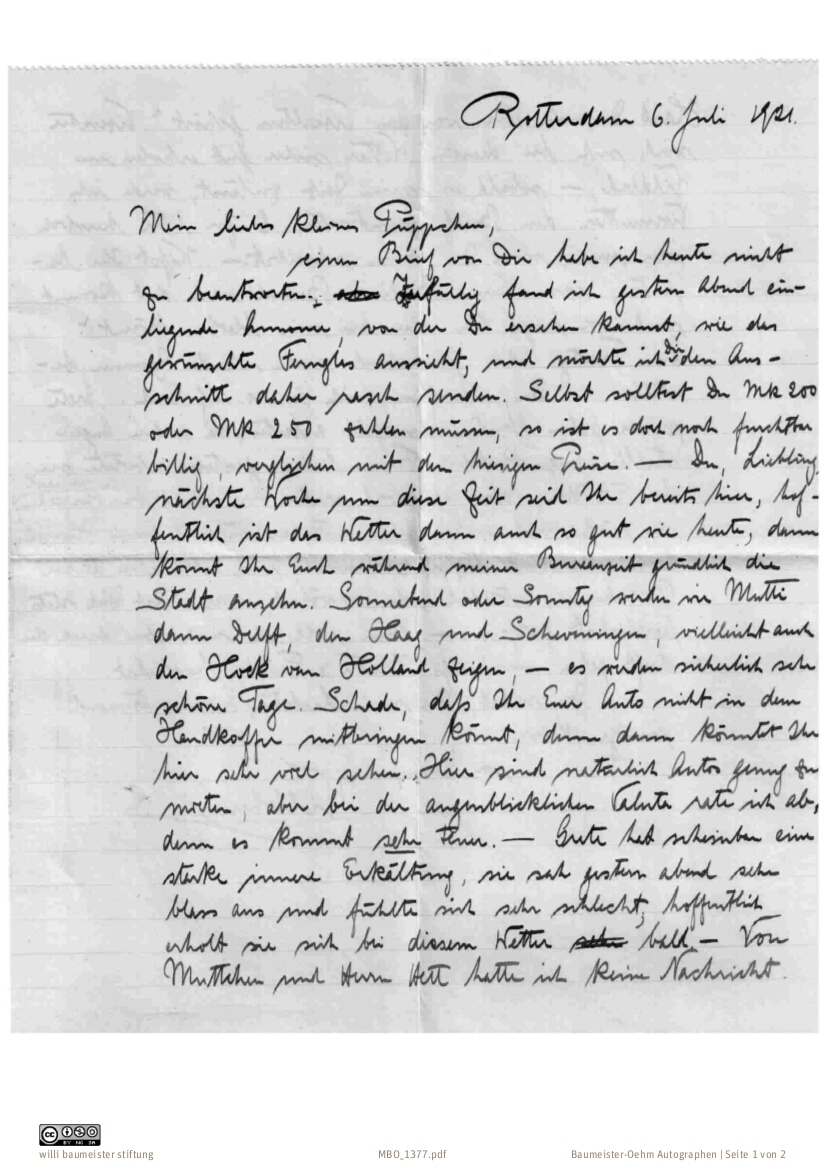 Rotterdam 6. Juli 1921.
Mein liebes kleines Püppchen,
einen Brief von Dir habe ich heute nicht
zu beantworten. aber Zufällig fand ich gestern Abend ein-
liegende Annonce, von der Du ersehen kannst, wie das
gewünschte Fernglas aussieht, und möchte ich Dir den Aus-
schnitt daher rasch senden. Selbst solltest Du Mk 200
oder Mk 250 zahlen müssen, so ist es doch noch furchtbar
billig, verglichen mit dem hiesigen Preise. — Du, Liebling,
nächste Woche um diese Zeit seid Ihr bereits hier, hof-
fentlich ist das Wetter dann auch so gut wie heute, dann
könnt Ihr Euch während meiner Bureauzeit gründlich die
Stadt ansehn. Sonnabend oder Sonntag werden wir Mutti
dann Delft, den Haag und Scheveningen, vielleicht auch
den Hoek van Holland zeigen, — es werden sicherlich sehr
schöne Tage. Schade, daß Ihr Euer Auto nicht in dem
Handkoffer mitbringen könnt, denn dann könntet Ihr
hier sehr viel sehen. Hier sind natürlich Autos genug zu
mieten, aber bei der augenblicklichen Valuta rate ich ab,
denn es kommt sehr teuer. — Grete hat scheinbar eine
starke innere Erkältung, sie sah gestern abend sehr
blass aus und fühlte sich sehr schlecht, hoffentlich
erholt sie sich bei diesem Wetter sehr bald. — Von
Muttchen und Herrn Hett hatte ich keine Nachricht.
willi baumeister stiftung
MBO_1377.pdf
Baumeister-Oehm Autographen | Seite 1 von 2